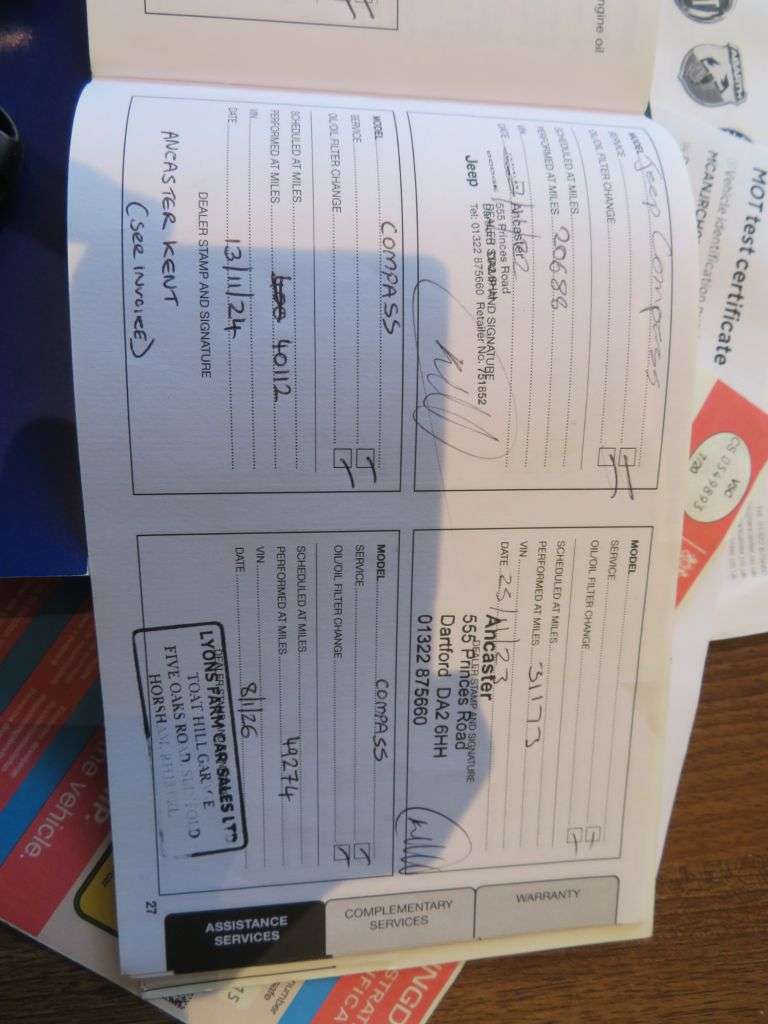 engine oil
MODEL Jeep Compass
SERVICE
OIL/OIL FILTER CHANGE
SCHEDULED AT MILES
PERFORMED AT MILES 20688
VIN
DATE
Ancaster
555 Princes Road
DEALER STAMP AND SIGNATURE
Jeep
Tel: 01322 875660 Retailer No. 751852
MODEL
SERVICE
OIL/OIL FILTER CHANGE
SCHEDULED AT MILES
PERFORMED AT MILES 31173
VIN
DATE 25/11/23
DEALER STAMP AND SIGNATURE
Ancaster
555 Princes Road
Dartford DA2 6HH
01322 875660
MODEL COMPASS
SERVICE
OIL/OIL FILTER CHANGE
SCHEDULED AT MILES
PERFORMED AT MILES 40112
VIN
DATE 13/11/24
DEALER STAMP AND SIGNATURE
ANCASTER KENT
(SEE INVOICE)
MODEL COMPASS
SERVICE
OIL/OIL FILTER CHANGE
SCHEDULED AT MILES
PERFORMED AT MILES 49274
VIN
DATE 8/1/26
LYONS FARM CAR SALES LTD
TOAT HILL GARAGE
FIVE OAKS ROAD
HORSHAM
27
WARRANTY
COMPLEMENTARY
SERVICES
ASSISTANCE
SERVICES
MOT test certificate
Vehicle identification
ABARTH
vehicle.